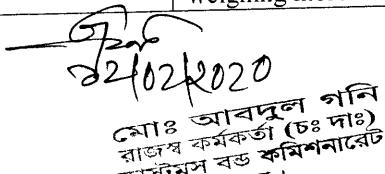 ১২/০২/২০২০
মোঃ আবদুল গনি
রাজস্ব কর্মকর্তা (চঃ দাঃ)
কাস্টমস বন্ড কমিশনারেট